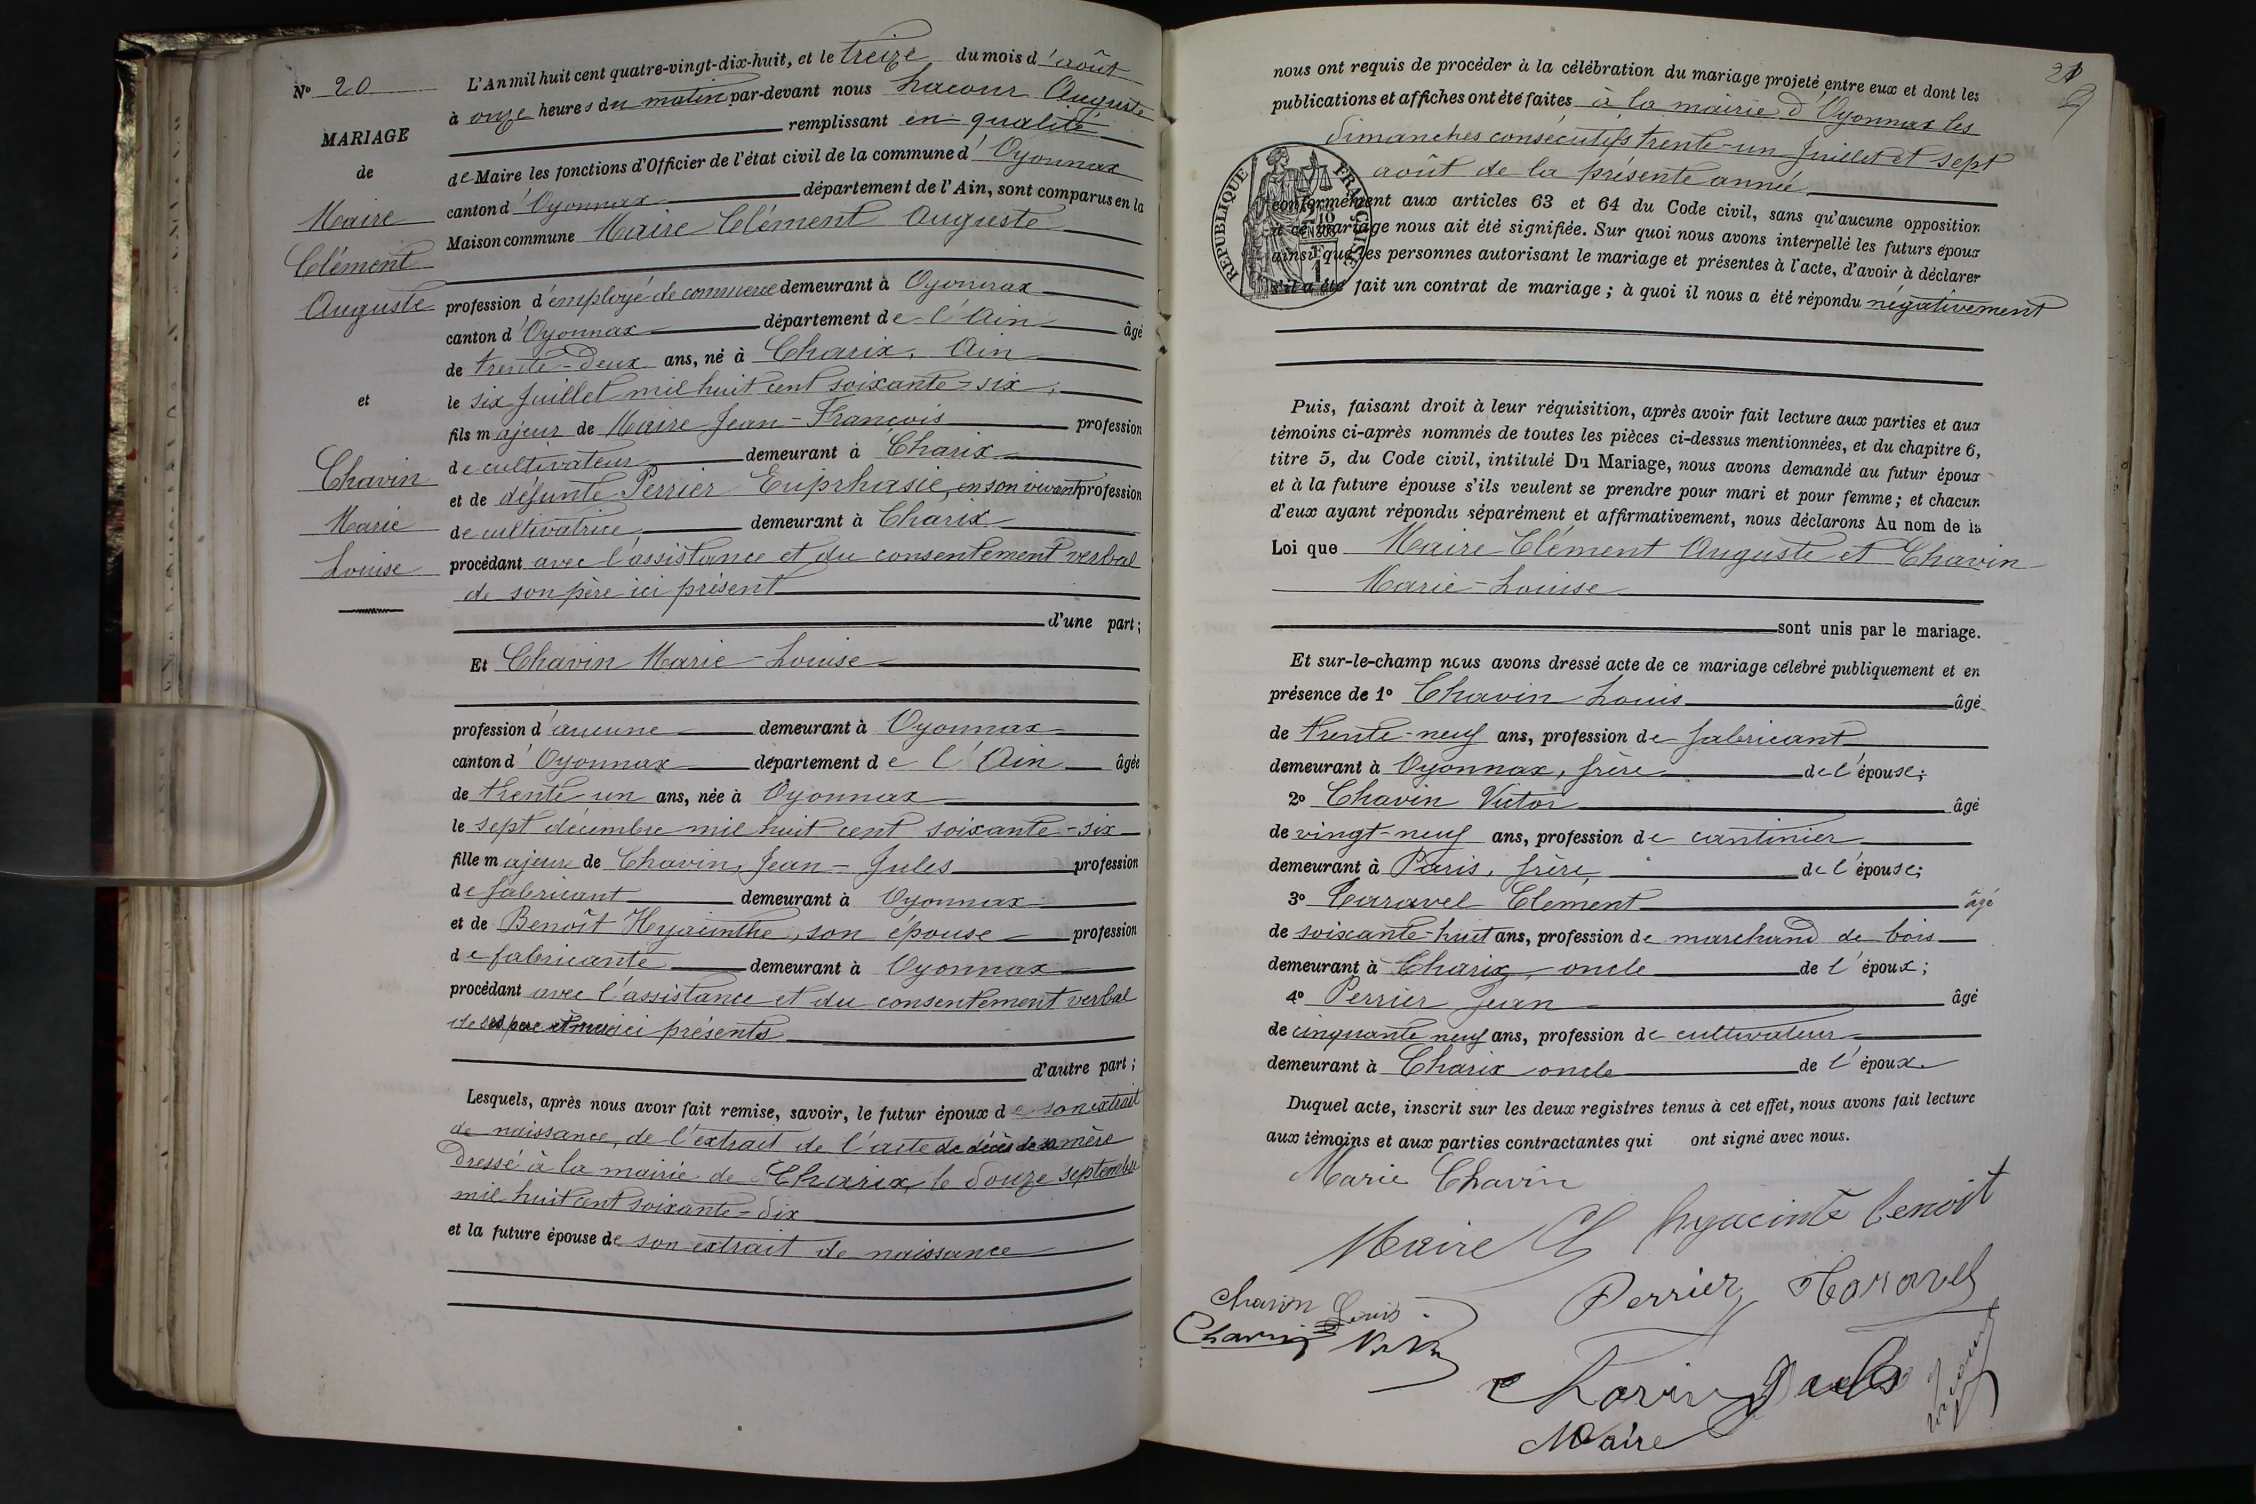 Nº 20
MARIAGE
de
Maire
Clément
Auguste
et
Chavin
Marie
Louise
L'An mil huit cent quatre-vingt-dix-huit, et le treize du mois d'août
à onze heures du matin par-devant nous Lacour Auguste
remplissant en qualité
de Maire les fonctions d'Officier de l'état civil de la commune d'Oyonnax
canton d'Oyonnax département de l'Ain, sont comparus en la
Maison commune Maire Clément Auguste
profession d'employé de commerce demeurant à Oyonnax
canton d'Oyonnax département de l'Ain âgé
de trente-deux ans, né à Charix, Ain
le six Juillet mil huit cent soixante-six,
fils majeur de Maire Jean-François profession
de cultivateur demeurant à Charix
et de défunte Perrier Euprhasie, en son vivant profession
de cultivatrice demeurant à Charix
procédant avec l'assistance et du consentement verbal
de son père ici présent
d'une part;
Et Chavin Marie-Louise
profession d'aucune demeurant à Oyonnax
canton d'Oyonnax département de l'Ain âgée
de trente un ans, née à Oyonnax
le sept décembre mil huit cent soixante-six
fille majeure de Chavin, Jean-Jules profession
de fabricant demeurant à Oyonnax
et de Benoît Hyacinthe, son épouse profession
de fabricante demeurant à Oyonnax
procédant avec l'assistance et du consentement verbal
de ses père et mère ici présents
d'autre part;
Lesquels, après nous avoir fait remise, savoir, le futur époux de son extrait
de naissance, de l'extrait de l'acte de décès de sa mère
dressé à la mairie de Charix, le douze septembre
mil huit cent soixante-dix
et la future épouse de son extrait de naissance
21
nous ont requis de procéder à la célébration du mariage projeté entre eux et dont les
publications et affiches ont été faites à la mairie d'Oyonnax les
dimanches consécutifs trente-un Juillet et sept
août de la présente année
RÉPUBLIQUE FRANÇAISE
conformément aux articles 63 et 64 du Code civil, sans qu'aucune opposition
à ce mariage nous ait été signifiée. Sur quoi nous avons interpellé les futurs époux
ainsi que les personnes autorisant le mariage et présentes à l'acte, d'avoir à déclarer
s'il a été fait un contrat de mariage; à quoi il nous a été répondu négativement
Puis, faisant droit à leur réquisition, après avoir fait lecture aux parties et aux
témoins ci-après nommés de toutes les pièces ci-dessus mentionnées, et du chapitre 6,
titre 5, du Code civil, intitulé Du Mariage, nous avons demandé au futur époux
et à la future épouse s'ils veulent se prendre pour mari et pour femme; et chacun
d'eux ayant répondu séparément et affirmativement, nous déclarons Au nom de la
Loi que Maire Clément Auguste et Chavin
Marie-Louise
sont unis par le mariage.
Et sur-le-champ nous avons dressé acte de ce mariage célébré publiquement et en
présence de 1º Chavin Louis âgé
de trente-neuf ans, profession de fabricant
demeurant à Oyonnax, frère de l'épouse;
2º Chavin Victor âgé
de vingt-neuf ans, profession de cantinier
demeurant à Paris, frère, de l'épouse;
3º Taravel Clément âgé
de soixante-huit ans, profession de marchand de bois
demeurant à Charix, oncle de l'époux;
4º Perrier Jean âgé
de cinquante neuf ans, profession de cultivateur
demeurant à Charix oncle de l'époux
Duquel acte, inscrit sur les deux registres tenus à cet effet, nous avons fait lecture
aux témoins et aux parties contractantes qui ont signé avec nous.
Marie Chavin
Maire C hyacinte benoit
Chavin Louis
Perrier Taravel
Chavin
Chavin Jules
Maire